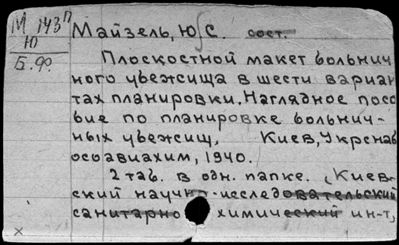 М 143П
Ю
Б.Ф.
Майзель, Ю С. сост.
Плоскостной макет больнич
ного убежища в шести вариан
тах планировки. Наглядное посо
бие по планировке больнич-
ных убежищ, Киев, Укрснаб
осоавиахим, 1940.
2 таб. в одн. папке. (Киев-
ский научн-исследовательский
санитарно химический ин-т,